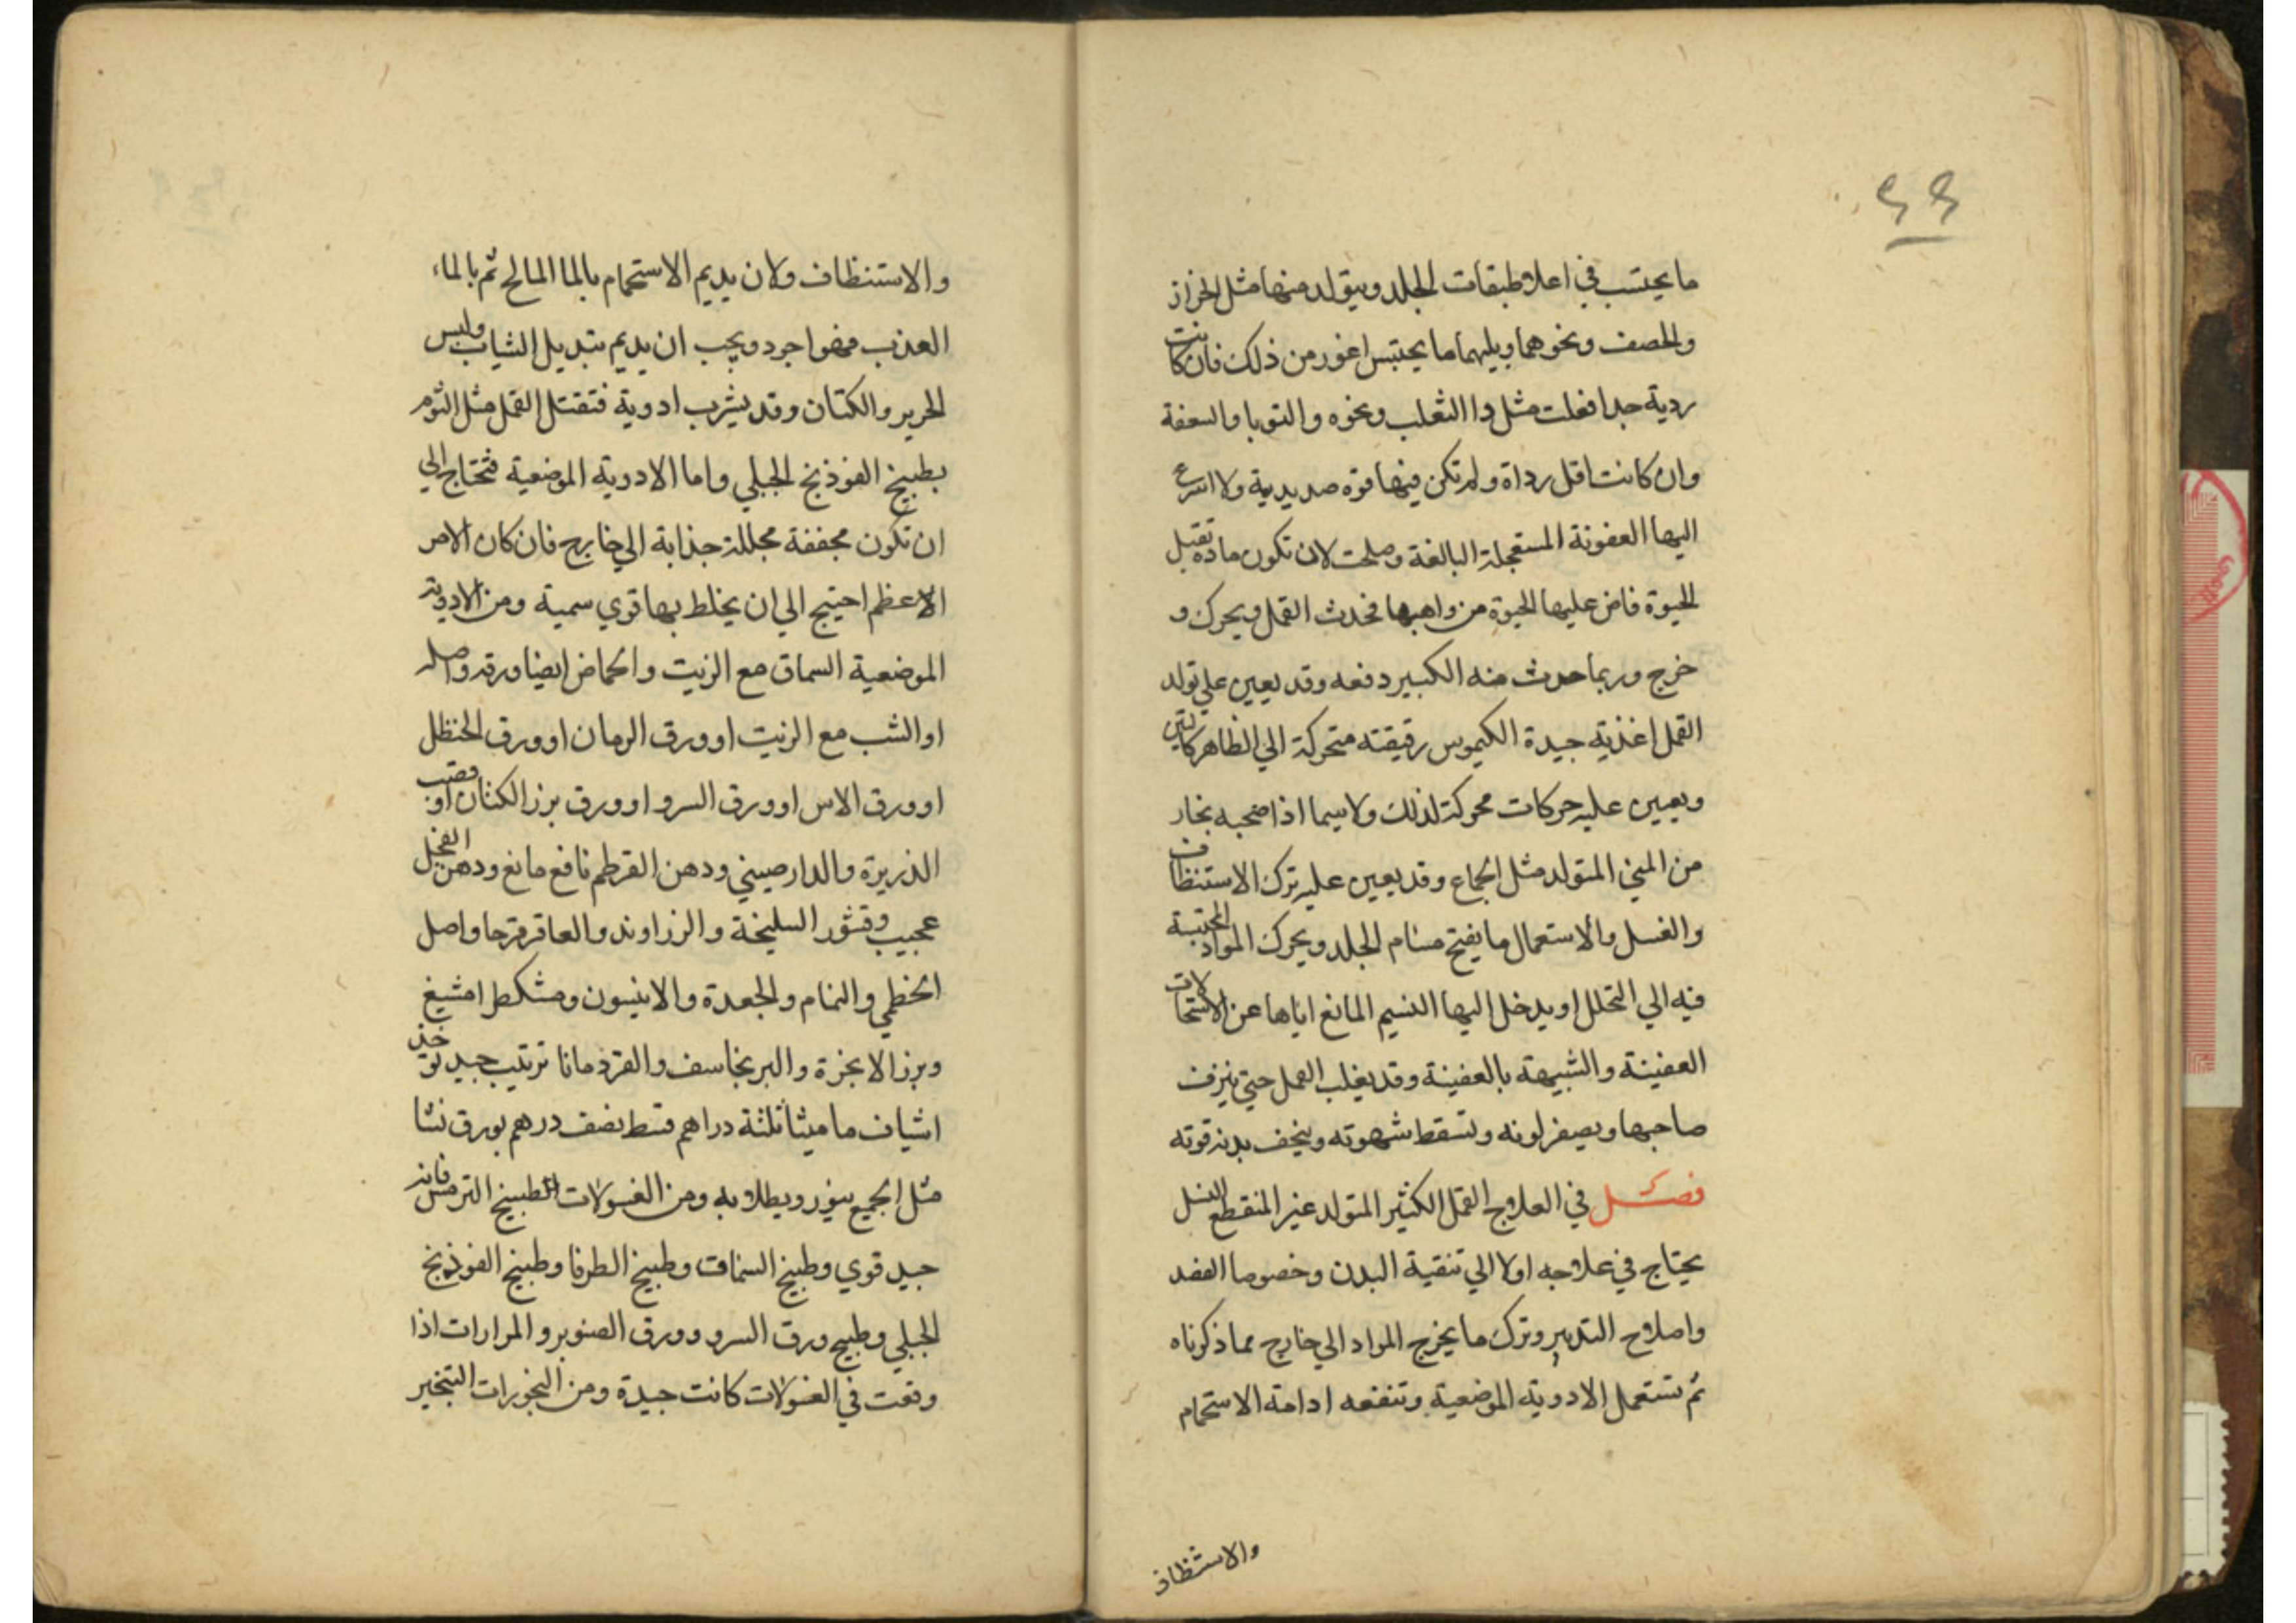 ٤٩
ما يحتبس في اعلا طبقات الجلد ويتولد منها مثل الحزاز
والحصف ونحوهما ويليهما ما يحتبس اغور من ذلك فان كانت
ردية جدا فعلت مثل دا الثعلب ونحوه والقوبا والسعفة
وان كانت اقل رداة ولم تكن فيها قوة صديدية ولا اسرع
اليها العفونة المستعجلة البالغة وصلحت لان تكون مادة تقبل
الحيوة فاض عليها الحيوة من واهبها فحدث القمل ويحرك و
خرج وربما حدث منه الكبير دفعه وقد يعين علي تولد
القمل اغذية جيدة الكيموس رقيقته متحركة الي الظاهر كالتين
ويعين عليه حركات محركة لذلك ولا سيما اذا صحبه بخار
من المني المتولد مثل الجماع وقد يعين عليه ترك الاستنظاف
والغسل والاستعمال ما يفتح مسام الجلد ويحرك المواد المحتبسة
فيه الي التحلل او يدخل اليها النسيم المانع اياها عن الاستحالات
العفينة والشبيهة بالعفينة وقد يغلب القمل حتي ينزف
صاحبها ويصفر لونه وتسقط شهوته وينحف بدنه قوته
فصل في العلاج القمل الكثير المتولد غير المنقطع النسل
يحتاج في علاجه اولا الي تنقية البدن وخصوصا الفصد
واصلاح التدبير وترك ما يخرج المواد الي خارج مما ذكرناه
ثم تستعمل الادوية الموضعية وتنفعه ادامة الاستحمام
والاستنظاف
والاستنظاف ولان يديم الاستحمام بالما المالح ثم بالماء
العذب فهو اجود ويجب ان يديم تبديل الثياب ولبس
الحرير والكتان وقد يشرب ادوية فتقتل القمل مثل الثوم
بطبيخ الفوذنج الجبلي واما الادوية الموضعية فتحتاج الي
ان تكون مجففة محللة جذابة الي خارج فان كان الامر
الاعظم احتيج الي ان يخلط بها قوي سمية ومن الادوية
الموضعية السماق مع الزيت والحماض ايضا ورقه واصله
او الشب مع الزيت او ورق الرمان او ورق الحنظل
او ورق الاس او ورق السرو او ورق بزر الكتان او قصب
الذريرة والدارصيني ودهن القرطم نافع مانع ودهن الفجل
عجيب وقشور السليخة والزراوند والعاقرقرحا واصل
الخطمي والنمام والجعدة والانيسون ومشكطرامشيغ
وبزر الانجزة والبرنجاسف والقردمانا ترتيب جيد تؤخذ
اشياف ماميثا ثلثة دراهم قسط نصف درهم بورق نشا
مثل الجميع ينور ويطلا به ومن الغسولات الطبيخ الترمس فانه
جيد قوي وطبيخ السماق وطبيخ الطرفا وطبيخ الفوذنج
الجبلي وطبيح ورق السرو وورق الصنوبر والمرارات اذا
وقعت في الغسولات كانت جيدة ومن البخورات التبخير